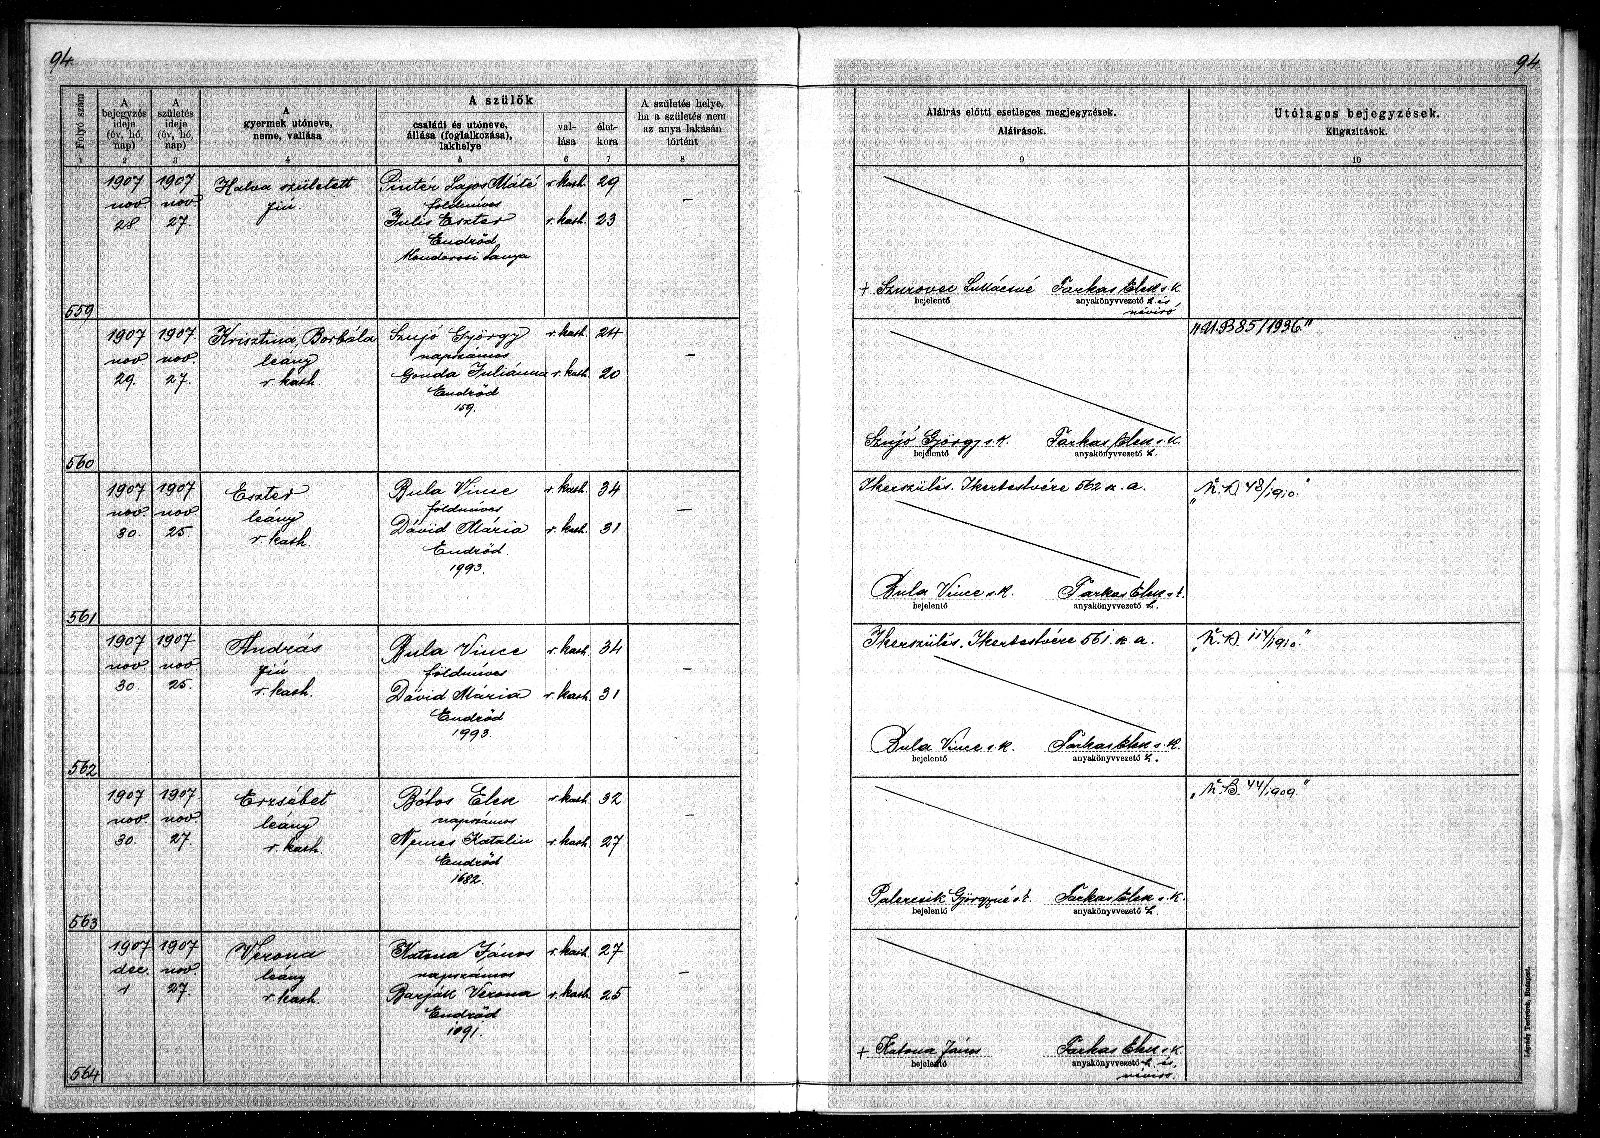 94
94
Folyó szám
A bejegyzés ideje (év, hó, nap)
A születés ideje (év, hó, nap)
A gyermek utóneve, neme, vallása
A szülők
családi és utóneve, állása (foglalkozása), lakhelye
vallása
életkora
A születés helye, ha a születés nem az anya lakásán történt
Aláírás előtti esetleges megjegyzések.
Aláírások.
Utólagos bejegyzések.
Kiigazítások.
1 2 3 4 5 6 7 8 9 10
559
1907 nov 28
1907 nov 27.
Halva született
fiú.
Pintér Lajos Máté r. kath. 29
földmíves
Iulis Eszter r. kath. 23
Endrőd
tanya
–
+ Szurovec Lukácsné Farkas Elek s. k.
bejelentő anyakönyvvezető h. és
névíró
560
1907 nov 29.
1907 nov 27.
Krisztina, Borbála
leány
r. kath.
Szujó György r. kath. 24
napszámos
Gonda Juliánna r. kath. 20
Endrőd
159.
–
Szujó György s. k. Farkas Elek s. k.
bejelentő anyakönyvvezető h.
85/1936"
561
1907 nov. 30.
1907 nov 25
Eszter
leány
r. kath.
Bula Vince r. kath. 34
földmíves
Dávid Mária r. kath. 31
Endrőd.
1993.
–
Ikerszülés. Ikertestvére 562 sz. a.
Bula Vince s. k. Farkas Elek s. k.
bejelentő anyakönyvvezető h.
43/1910."
562
1907 nov. 30.
1907 nov 25.
András
fiú
r. kath.
Bula Vince r. kath. 34
földmíves
Dávid Mária r. kath. 31
Endrőd
1993.
–
Ikerszülés. Ikertestvére 561 sz. a.
Bula Vince s. k. Farkas Elek s. k.
bejelentő anyakönyvvezető h.
114/1910."
563
1907 nov. 30.
1907 nov. 27.
Erzsébet
leány
r. kath.
Bótos Elek r. kath. 32
napszámos
Nemes Katalin r. kath. 27
Endrőd
1682.
–
Palercsik Györgyné s. k. Farkas Elek s. k.
bejelentő anyakönyvvezető h.
44/1909."
564
1907 dec. 1
1907 nov. 27.
Verona
leány
r. kath.
Katona János r. kath. 27
napszámos
Barják Verona r. kath. 25
Endrőd
1091.
–
+ Katona János Farkas Elek s. k.
bejelentő anyakönyvvezető h. és
névíró.